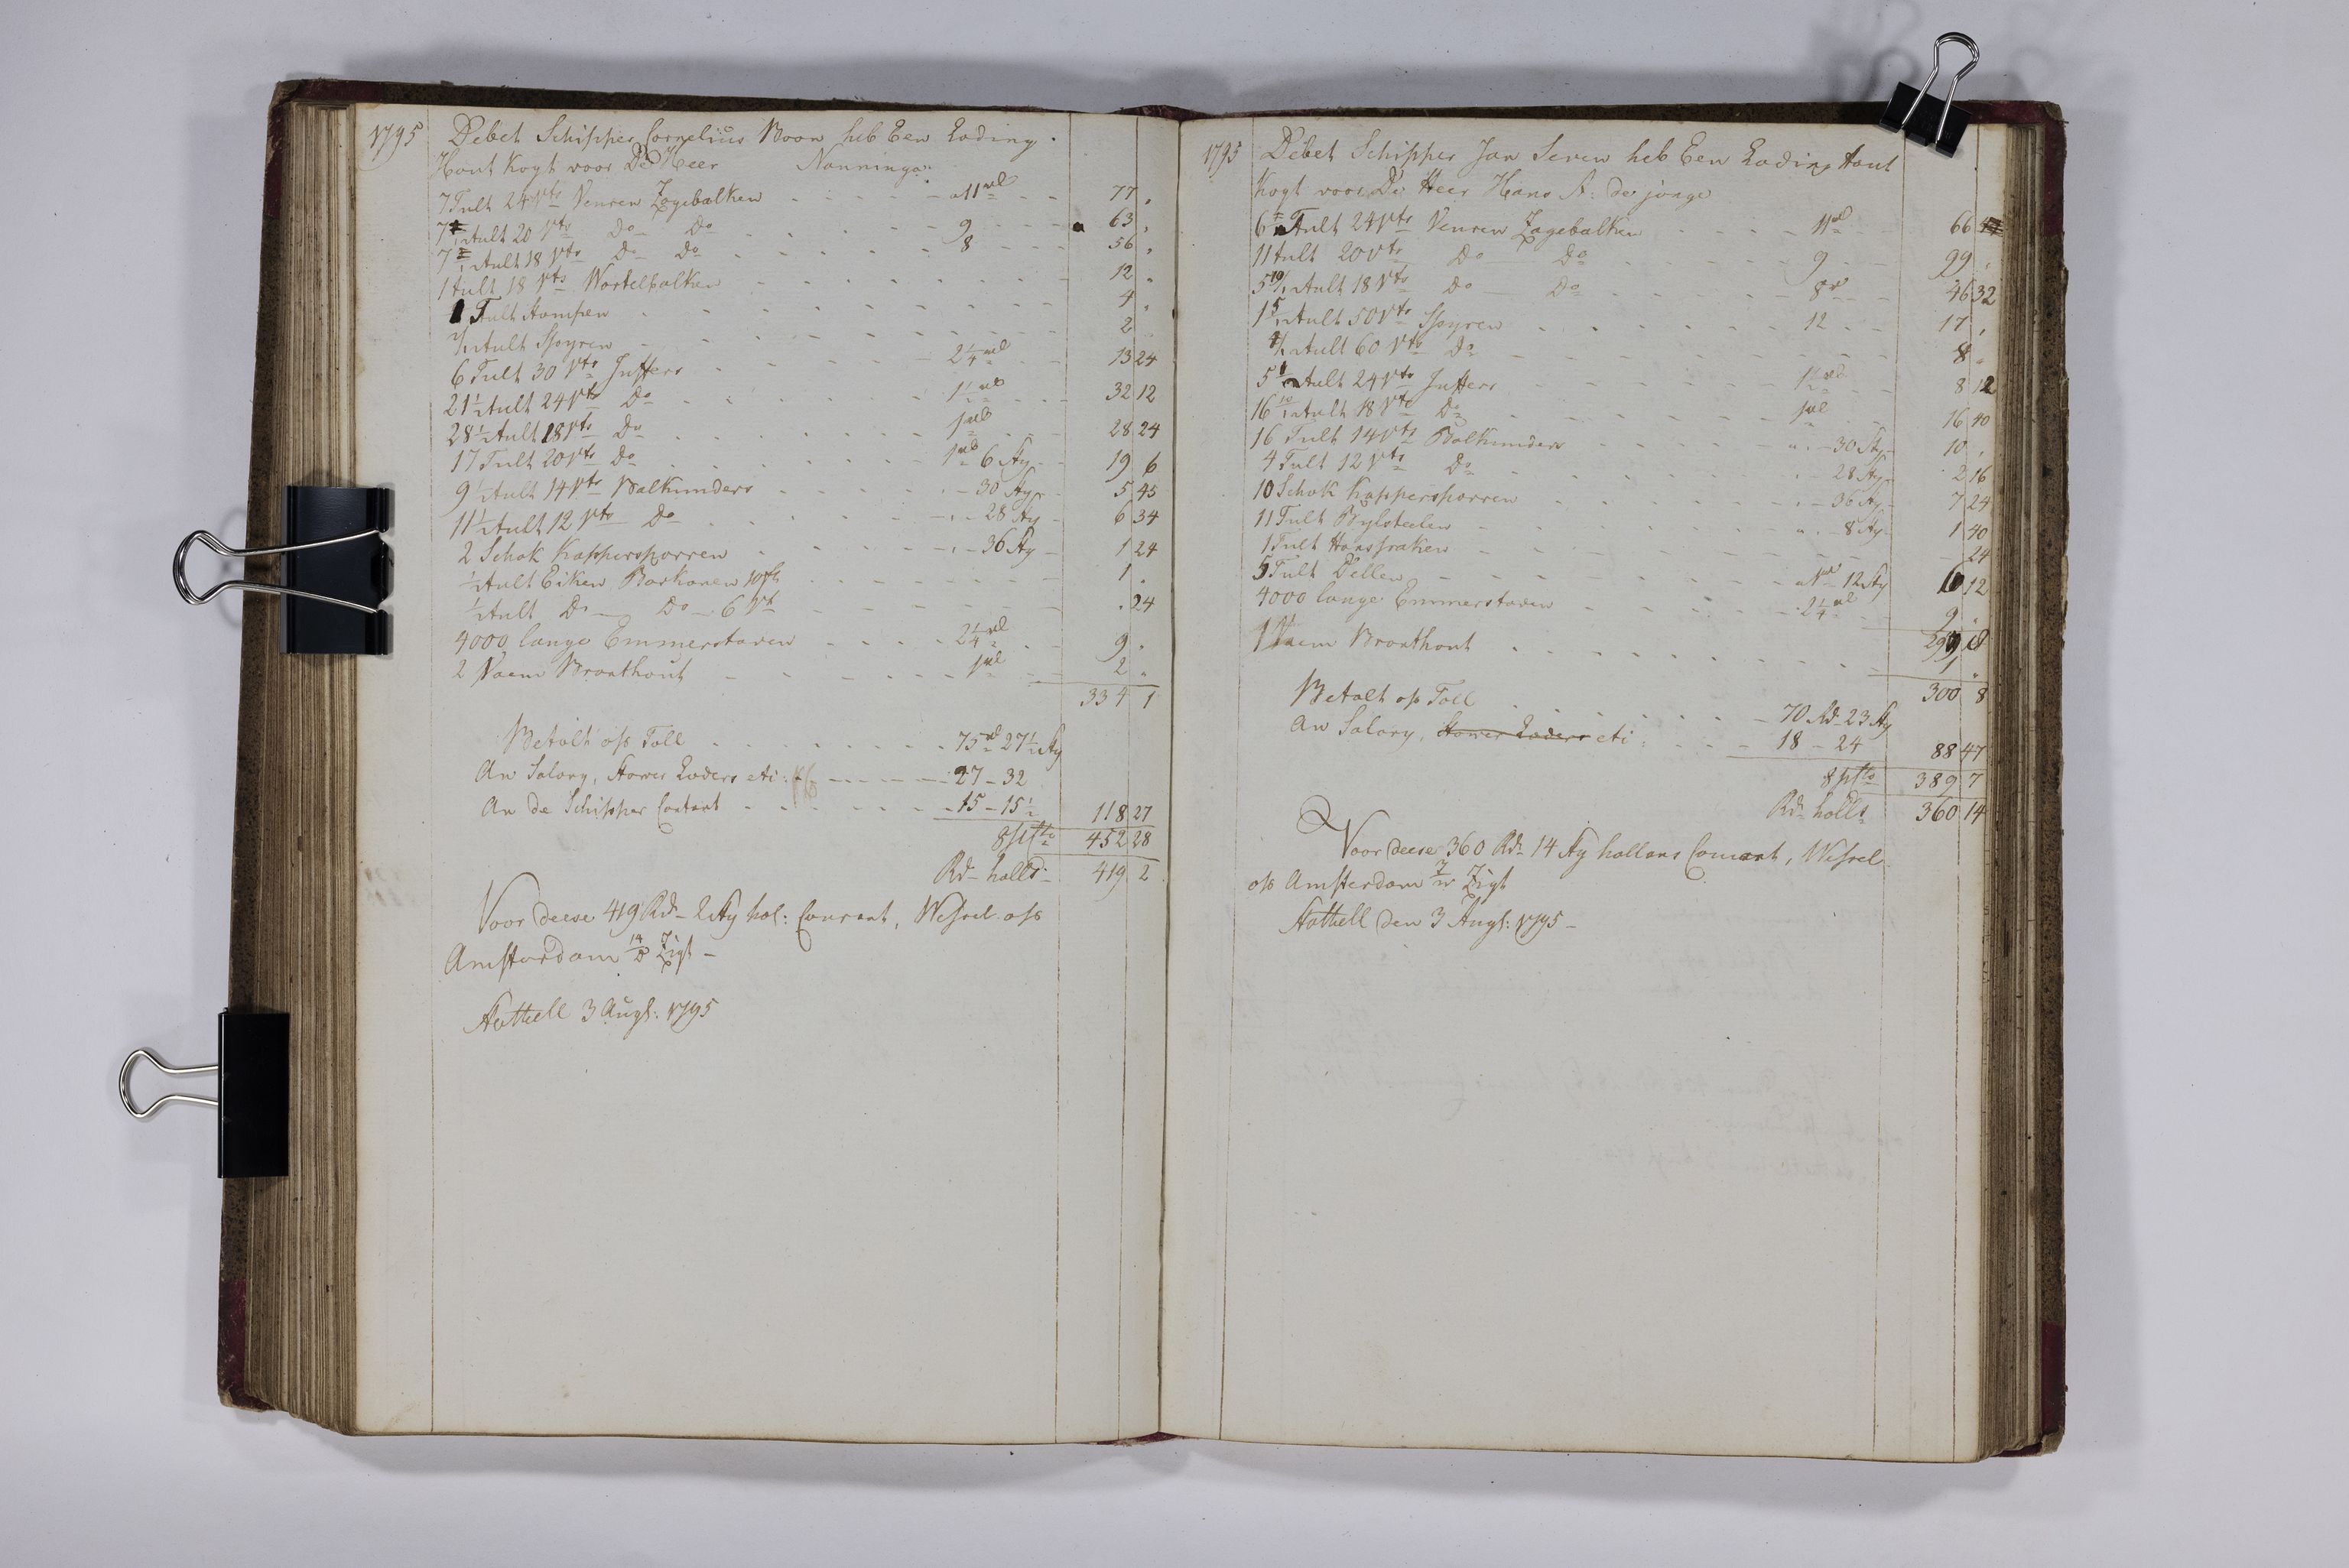 1795 Debet Schipper Cornelius Boon heb Een Lading
Hout Kogt voor De Heer Nanninga
7 Tult 24 Vts Vuuren Zagebalken a 11 rd 77
7 Tult 20 Vts Do Do 9 63
7 Tult 18 Vts Do Do 8 56
1 tult 18 Vts Wortelbalken 12
1 Tult Kampen 4
Tult Spyren 2
6 Tult 30 Vts Juffers 2¼ rd 13 24
21½ Tult 24 Vts Do 1½ rd 32 12
28½ Tult 18 Vts Do 1 rd 28 24
17 Tult 20 Vts Do 1 rd 6 sty 19 6
9½ Tult 14 Vts Balkunders 30 sty 5 45
11½ Tult 12 Vts Do 28 sty 6 34
2 Schok Kappersporren 36 sty 1 24
½ Tult Eiken 1
½ Tult Do Do 6 Vt 24
4000 lange Emmerstaven 2¼ rd 9
2 Vaem Branthout 1 rd 2
334 1
Betalt op Toll 75 rd 27½ sty
An Salary, Stower Loders etc: 27 - 32
An de Schipper Contant 15 - 15½ 118 27
8 pCto 452 28
Rd holls 419 2
Voor deese 419 Rd 2 sty hol: Courant, Wessel op
Amsterdam 14/D Zigt
3 Augt: 1795
1795 Debet Schipper Jan Seven heb Een Lading Hout
Kogt voor De Heer Hans A: de jonge
6 Tult 24 Vts Vuuren Zagebalken 11 rd 66
11 tult 20 Vts Do Do 9 99
5 10/12 Tult 18 Vts Do Do 8 rd 46 32
1 5/12 Tult 50 Vts Spyren 12 17
Tult 60 Vts Do 8
5½ Tult 24 Vts Juffers 1½ rd 8 12
16 10/12 Tult 18 Vts Do 1 rd 16 40
16 Tult 14 Vts Balkunders 30 sty 10
4 Tult 12 Vts Do 28 sty 2 16
10 Schok Kappersporren 36 sty 7 24
11 Tult Bylsteelen 8 sty 1 40
1 Tult Hansspaken 24
5 Tult Dellen a 1 rd 12 sty 6 12
4000 lange Emmerstaven 2¼ rd 9
299 8
1 Vaem Branthout 1
300 8
Betalt op Toll 70 Rd 23 sty
An Salary, Stower Loders etc: 18 - 24 88 47
8 pCto 389 7
Rd holls 360 14
Voor deese 360 Rd 14 sty hollans Courant, Wessel
op Amsterdam Zigt
den 3 Augt: 1795